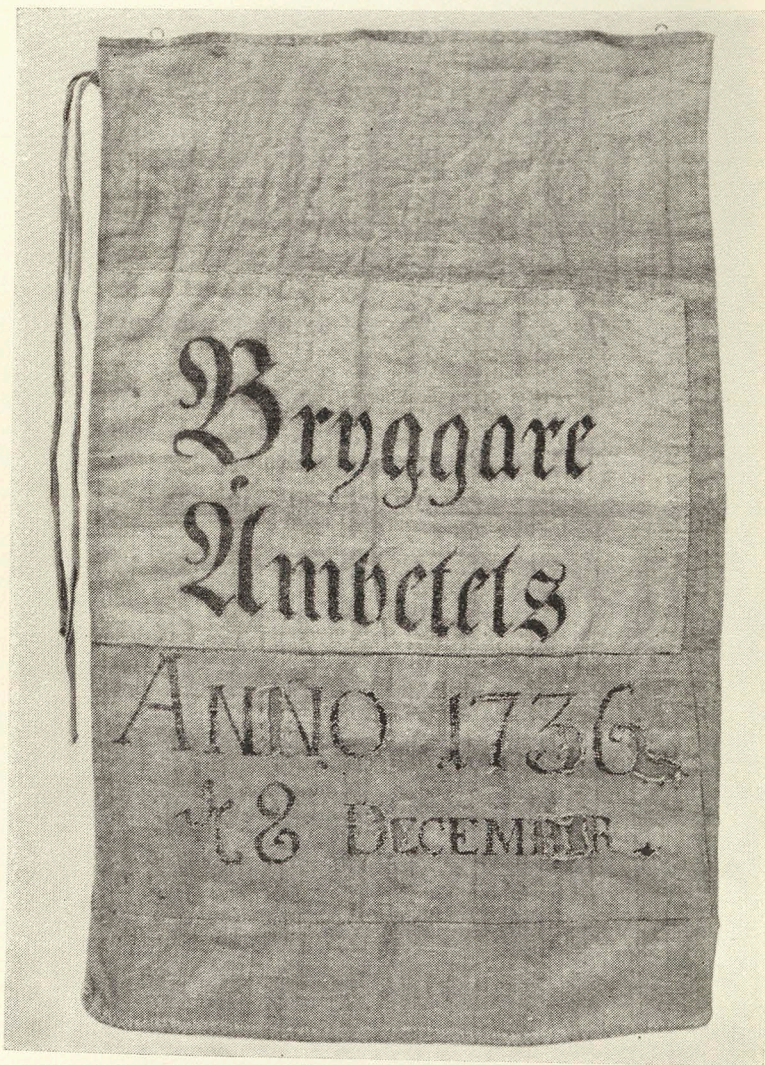 Bryggare
Ämbetets
ANNO 1736
8 DECEMBER.